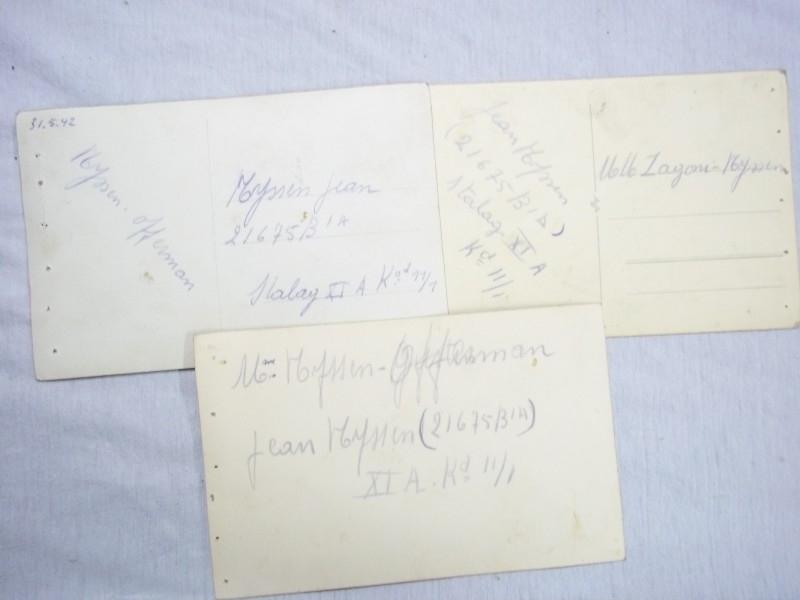 31.5.42
Nyssen-Offerman
Nyssen Jean
21675B IA
Stalag XI A Kd 11/1
Jean Nyssen
(21675/B IA)
Stalag XI A
Kd 11/1
Zagoni-Nyssen
Mme Nyssen-Offerman
Jean Nyssen (21675B IA)
XI A. Kd 11/1